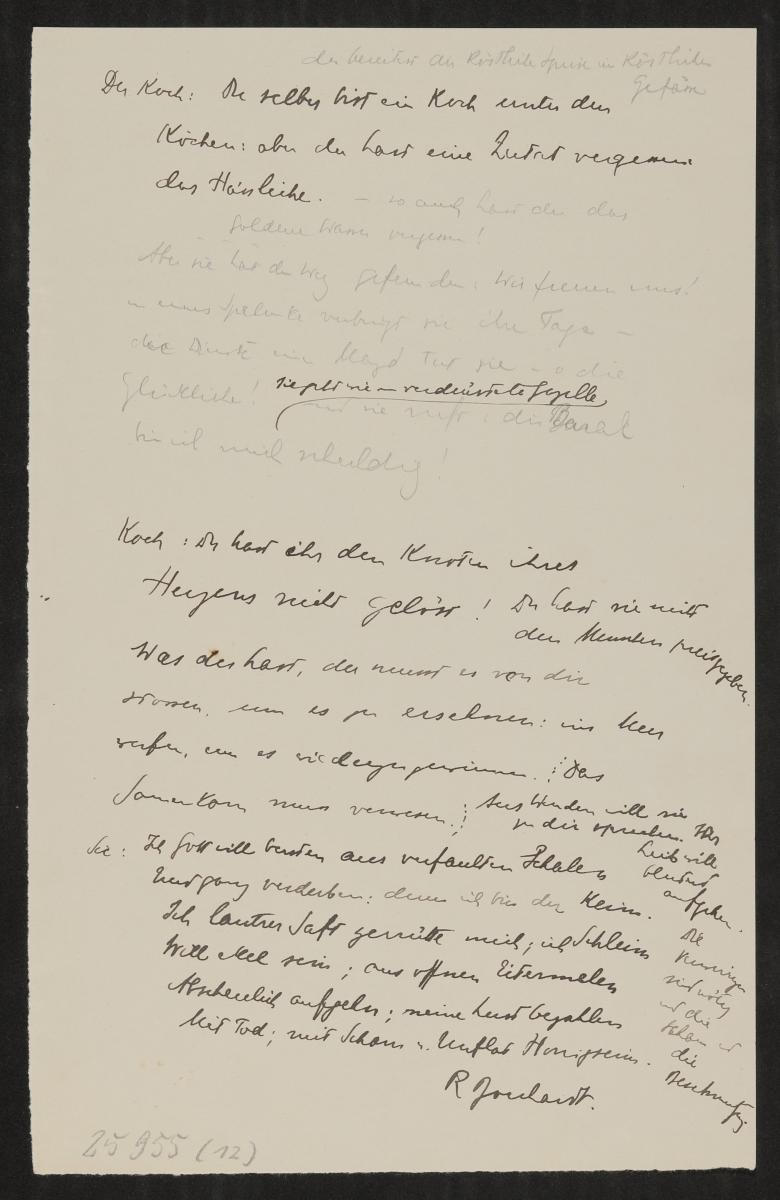 du bereitest die köstliche Speise in köstlichen
Gefäss
Der Koch: Du selber bist ein Koch unter den
Köchen: aber du hast eine Zutat vergessen:
das Hässliche. – so auch hast du das
goldene Wasser vergessen!
Aber sie hat den Weg gefunden: Wir freuen uns!
in einer Spelunke verbringt sie ihre Tage –
die Dienste einer Magd tut sie – o die
Glückliche! sie geht wie – verdürstete Gazelle
und sie ruft: die Barak
bin ich mich schuldig!
Koch: Du hast ihr den Knoten ihres
Herzens nicht gelöst! Du hast sie nicht
den Menschen preisgegeben.
Was du hast, du musst es von dir
stossen, um es zu ersehnen: ins Meer
werfen, um es wiederzugewinnen. Das
Samenkorn muss verwesen.
Aus Wunden will sie
zu dir sprechen. Ihr
Leib will
blutend
aufgehen.
Sie: Ich Gott will bersten aus verfaulten Schalen
Und ganz verderben: denn ich bin der Keim.
Ich lautrer Saft zerrütte mich; ich Schleim
Will Ekel sein; aus offnen Eitermalen
Abscheulich aufgehn; meine Lust bezahlen
Mit Tod; mit Scham u. Unflat Honigseim.
Die
sind nötig
und die
Scham ist
die
R Borchardt.
25 955 (12)